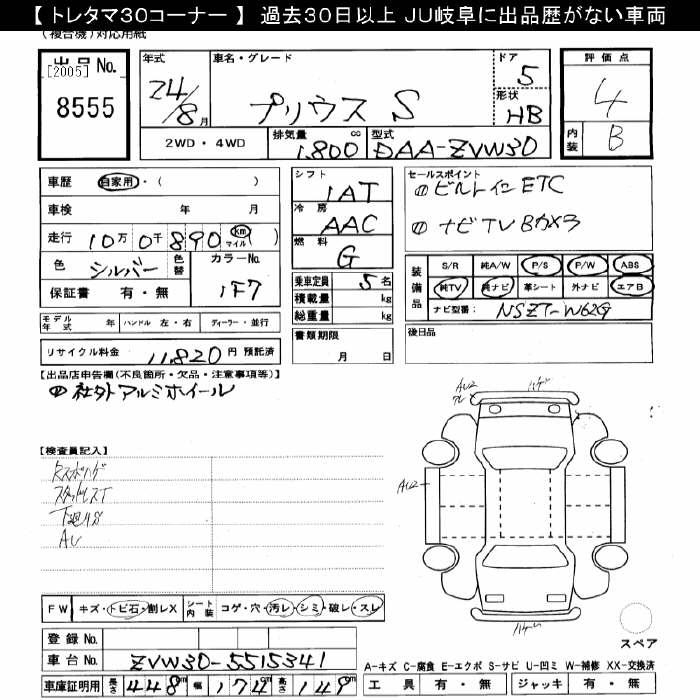 【 トレタマ30コーナー 】 過去30日以上 JU岐阜に出品歴がない車両
(複合機)対応用紙
出品 No.
[2005]
8555
年式
24/8月
車名・グレード
プリウス S
ドア
5
形状
HB
評価点
4
内装
B
2WD・4WD
排気量
1,800 cc
型式
DAA-ZVW30
車歴 自家用・( )
車検 年 月
走行 10万0千890 km マイル ( )
色 シルバー 色替
カラーNo.
1F7
保証書 有・無
シフト
1AT
冷房
AAC
燃料
G
セールスポイント
① ビルトインETC
① ナビTV Bカメラ
乗車定員 5名
積載量 kg
総重量 kg
装備品
S/R 純A/W P/S P/W ABS
純TV 純ナビ 革シート 外ナビ エアB
ナビ型番: NSZT-W62G
モデル年式 年 ハンドル 左・右 ディーラー・並行
書類期限
月 日
後日品
リサイクル料金 11,820円 預託済
【出品店申告欄(不良箇所・欠品・注意事項等)】
① 社外アルミホイール
【検査員記入】
AU
AU2
ハゲ
AU2
ハゲ
FW キズ・トビ石・削レX
シート内装 コゲ・穴・汚レ・シミ・破レ・スレ
登録 No.
車台 No. ZVW30-5515341
車庫証明用 長さ 448cm 幅 174cm 高さ 149cm
スペア
A-キズ C-腐食 E-エクボ S-サビ U-凹ミ W-補修 XX-交換済
工具 有・無 ジャッキ 有・無